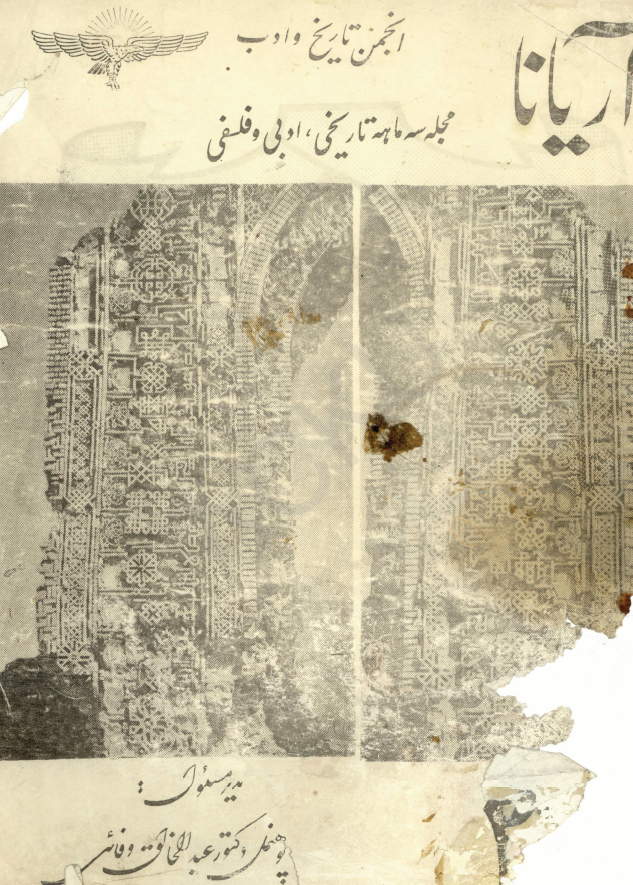 آریانا
انجمن تاریخ و ادب
مجله سه ماهه تاریخی، ادبی و فلسفی
مدیر مسئول :
پوهنمل دکتور عبدالخالق وفائی